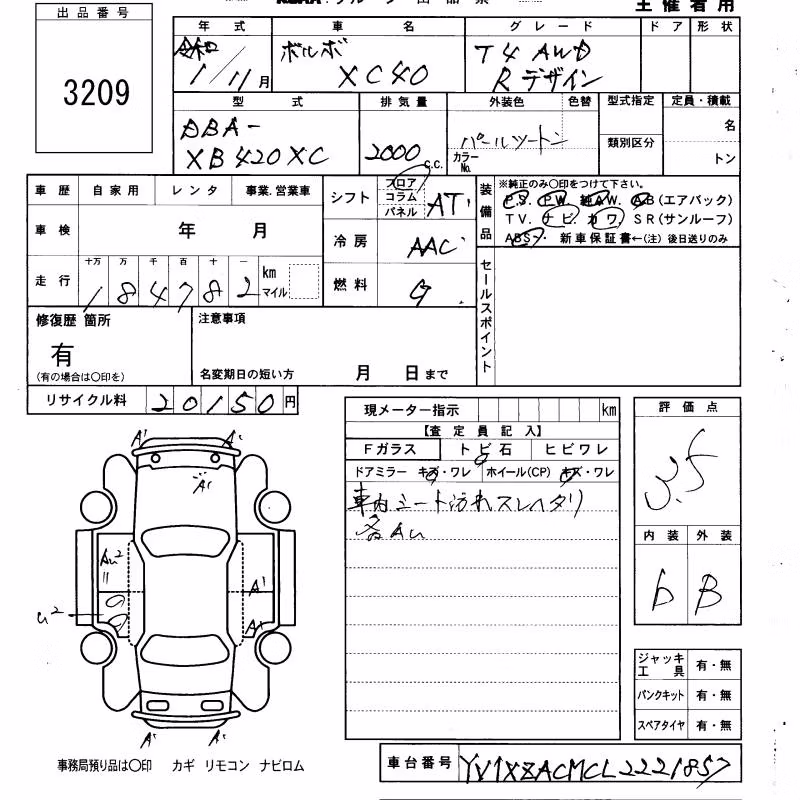 出品番号
3209
主催者用
年式 車名 グレード ドア 形状
令和
1/11月
ボルボ
XC40
T4 AWD
Rデザイン
型式 排気量 外装色 色替 型式指定 定員・積載
DBA-
XB420XC
2000 c.c.
パールツートン
カラーNo.
類別区分
名
トン
車歴 自家用 レンタ 事業.営業車
車検 年 月
走行 十万 万 千 百 十 一
18 4782 km マイル
シフト フロア コラム パネル AT
冷房 AAC
燃料 G
装備品
※純正のみ○印をつけて下さい。
P.S. P.W. 純A.W. A.B(エアバック)
T V. ナビ. カワ. S R(サンルーフ)
ABS・ 新車保証書←(注) 後日送りのみ
セールスポイント
修復歴 箇所
有
(有の場合は○印を)
注意事項
名変期日の短い方 月 日まで
リサイクル料 20150円
現メーター指示 km
【査定員記入】
Fガラス トビ石 ヒビワレ
ドアミラー キズ・ワレ ホイール(CP) キズ・ワレ
車内シート汚れスレヘタリ
各AU
評価点
3.5
内装 外装
b B
A1 A1
A1
AU2
U2
A1
A1
A1 A1
ジャッキ工具 有・無
パンクキット 有・無
スペアタイヤ 有・無
事務局預り品は○印 カギ リモコン ナビロム
車台番号 YV1XZACMCL2221857